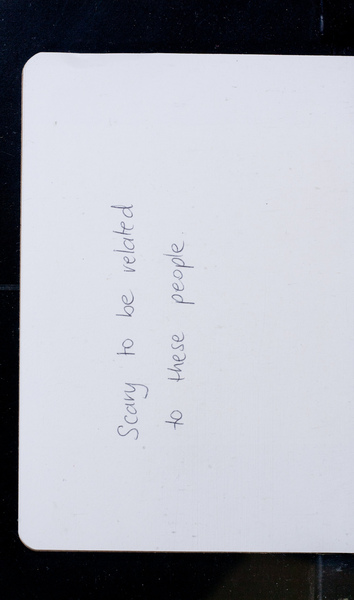 Scary to be related
to these people.